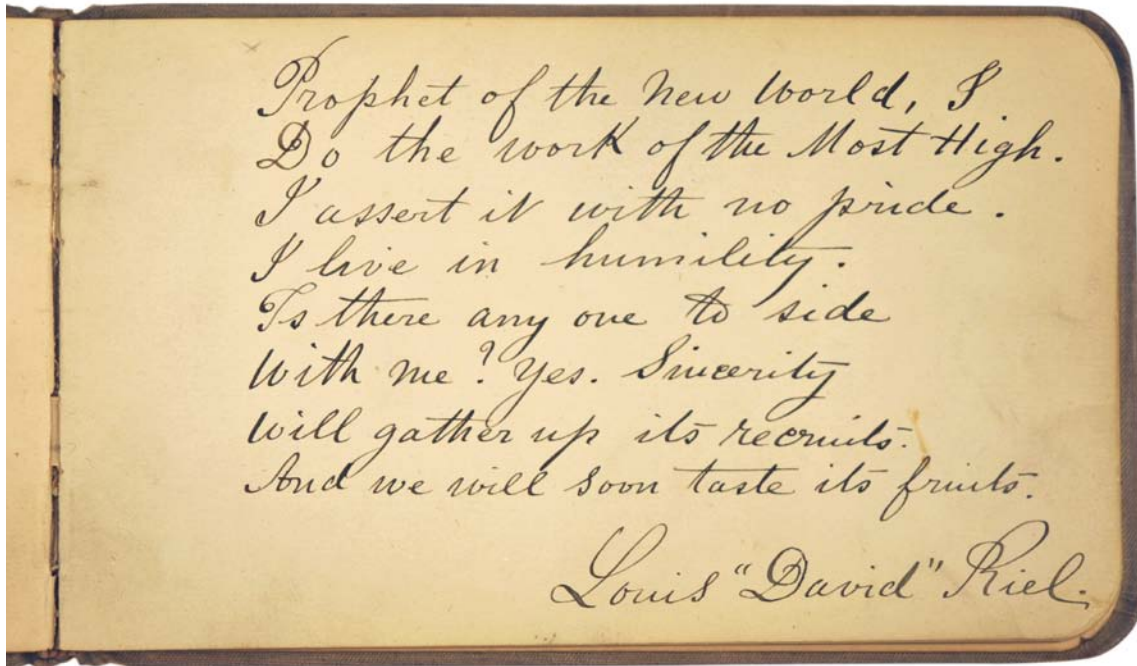 Prophet of the New World, I
Do the work of the Most High.
I assert it with no pride.
I live in humility.
Is there any one to side
With me? Yes. Sincerity
Will gather up its recruits.
And we will soon taste its fruits.
Louis "David" Riel.